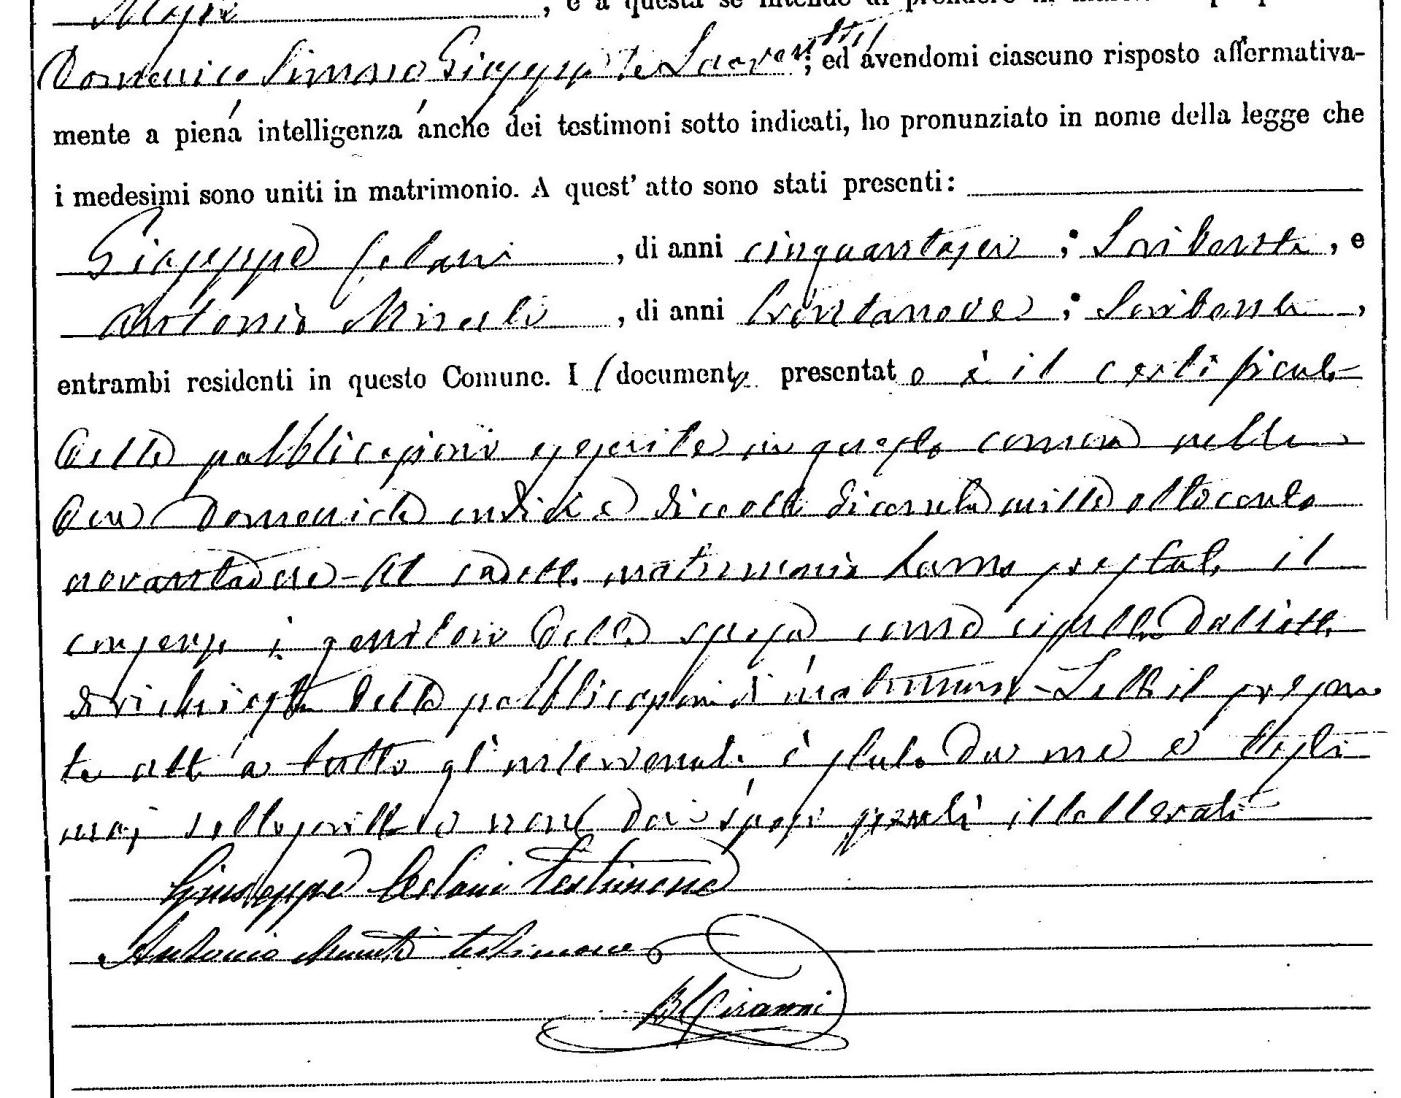 Moglie, e a questa se intende di prendere in
Domenico Simone Giuseppe ; ed avendomi ciascuno risposto affermativa-
mente a piena intelligenza anche dei testimoni sotto indicati, ho pronunziato in nome della legge che
i medesimi sono uniti in matrimonio. A quest' atto sono stati presenti:
Giuseppe Celani, di anni cinquantasei; Scribente, e
Antonio, di anni trentanove; Scribente,
entrambi residenti in questo Comune. I documento presentato è il certificato
delle pubblicazioni eseguite in questo comune nelle
due Domeniche undici e diciotto dicembre mille ottocento
novantadue - Al matrimonio hanno prestato il
consenso i genitori della sposa come risulta dall'atto
di richiesta delle pubblicazioni di matrimonio - Letto il presen
te atto a tutti gl'intervenuti è firmato da me e testi
moni sottoscritto e non dai sposi perchè illetterati
Giuseppe Celani testimone
Antonio testimone